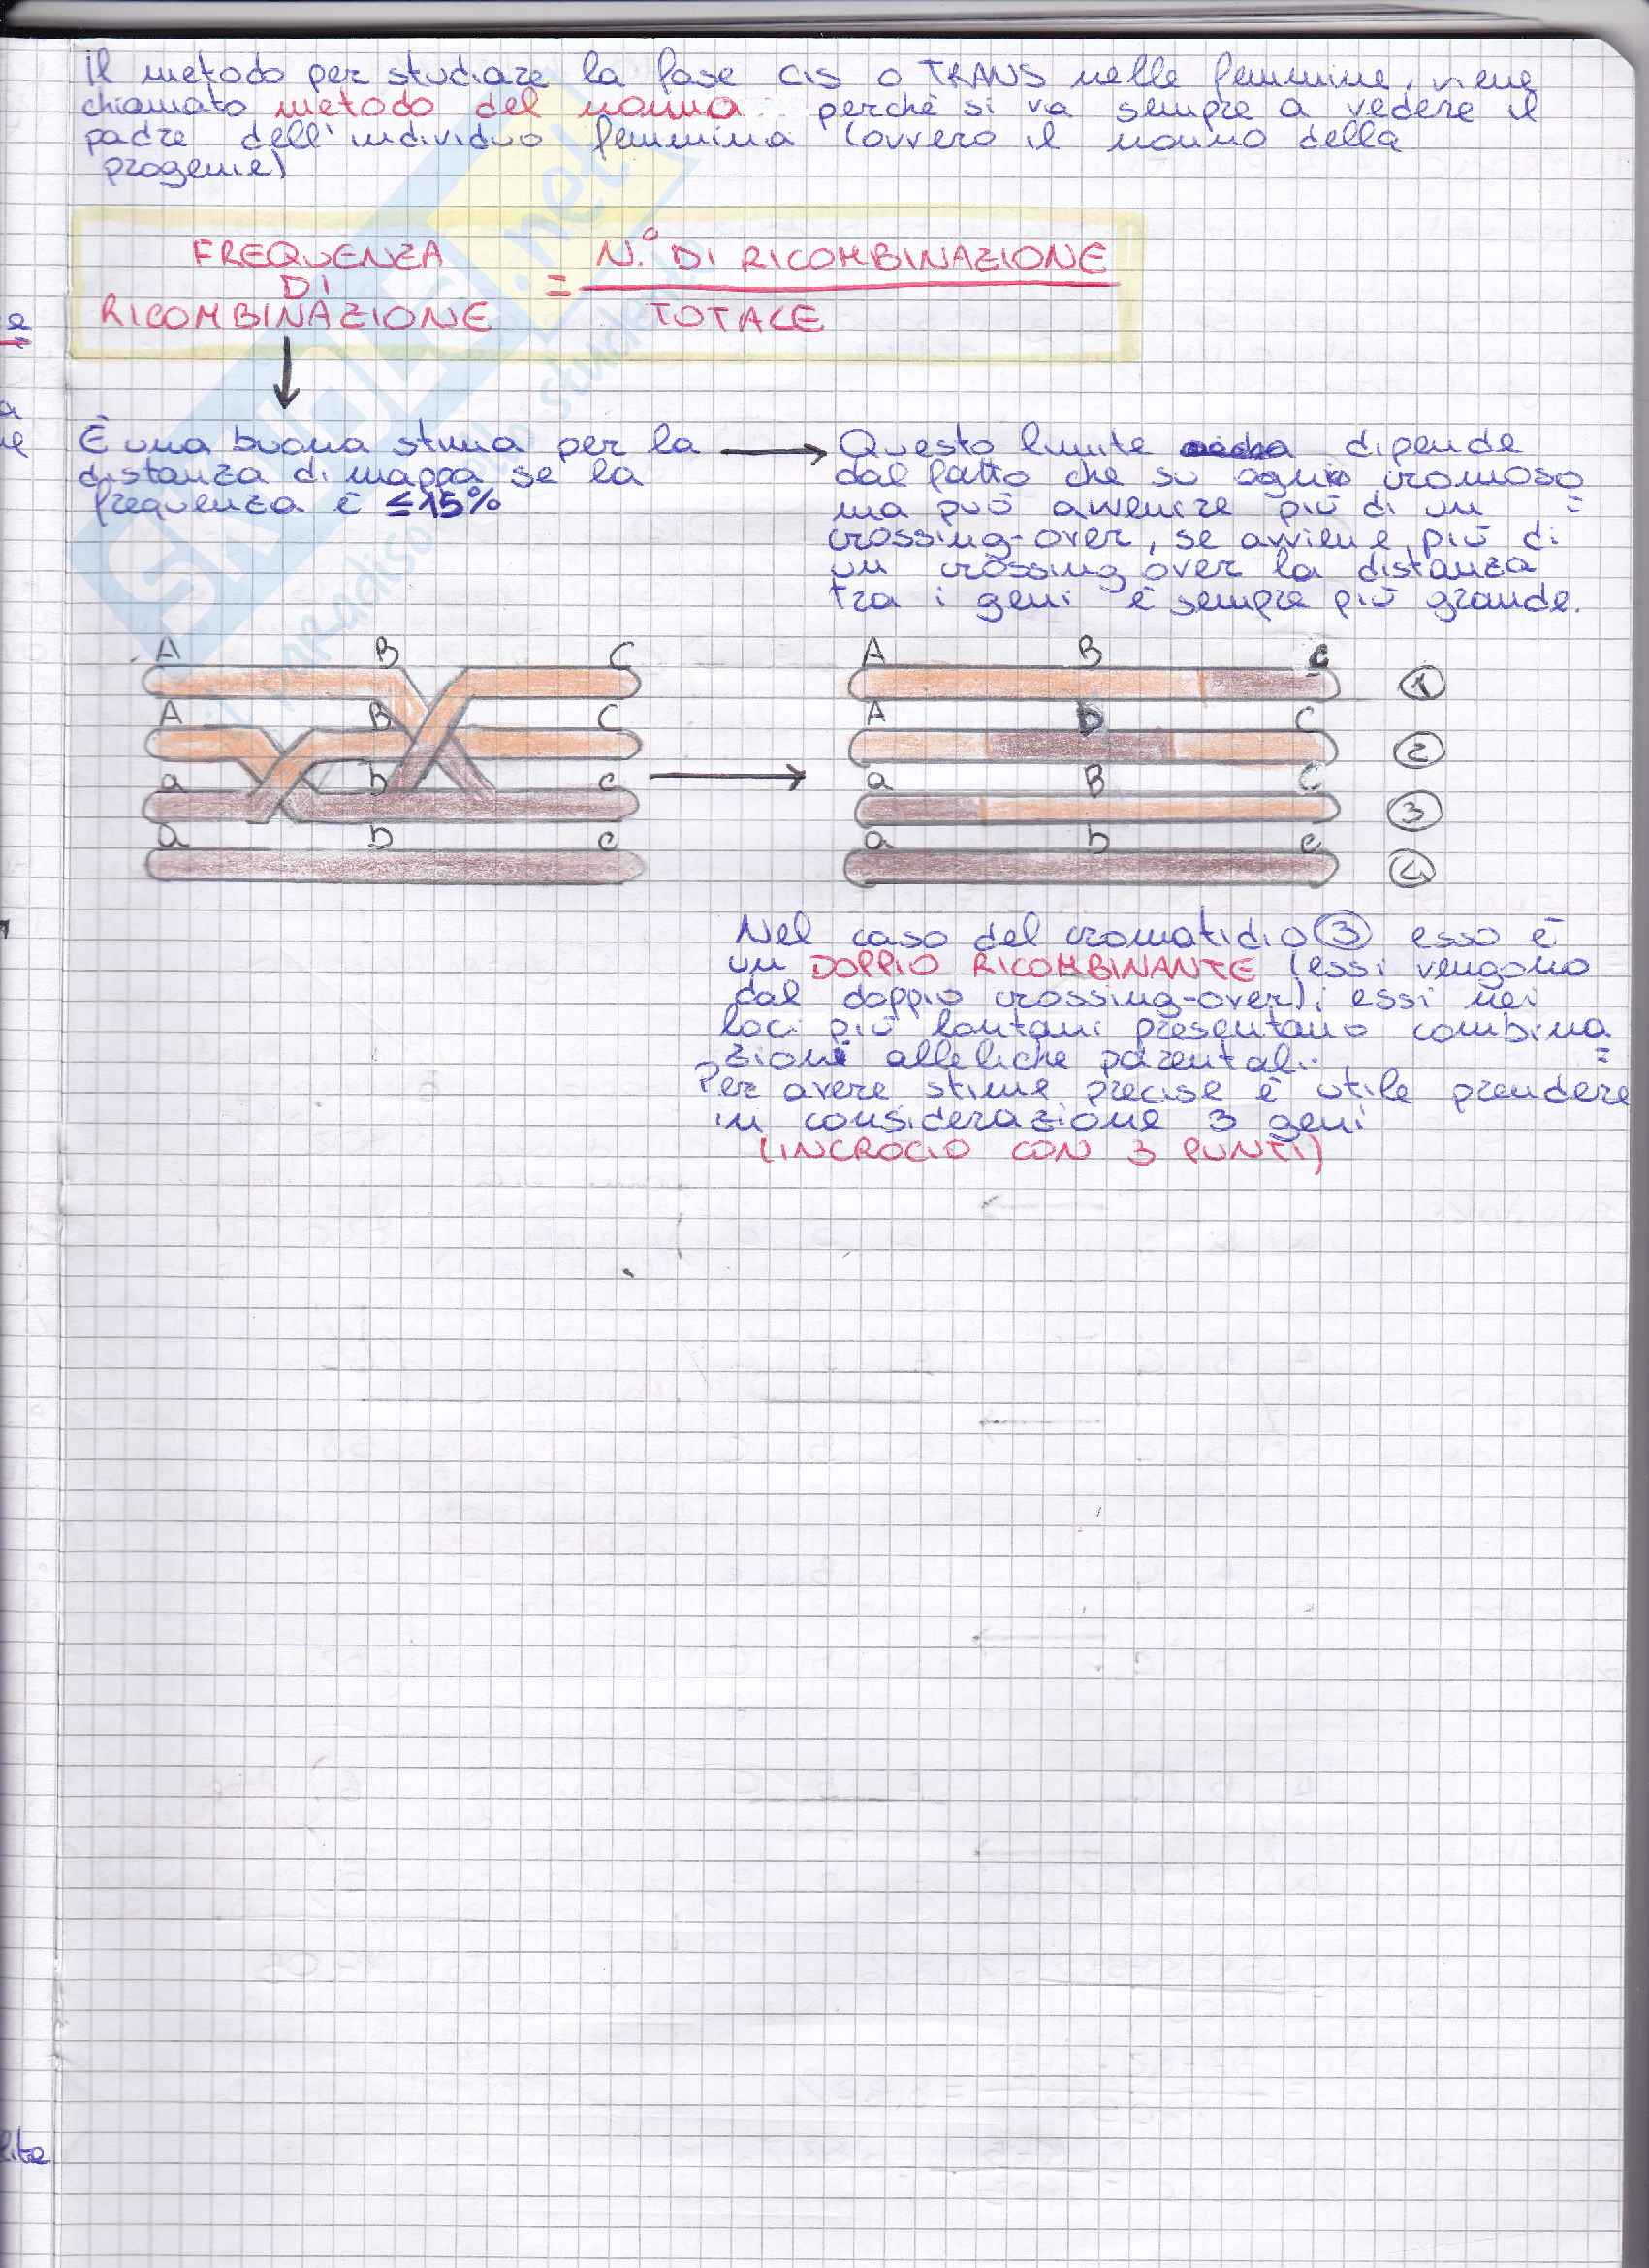 Il metodo per studiare la fase cis o TRANS nelle femmine, viene
chiamato metodo del nonno perchè si va sempre a vedere il
padre dell'individuo femmina (ovvero il nonno della
progenie)
FREQUENZA
DI
RICOMBINAZIONE
=
N.° DI RICOMBINAZIONE
TOTALE
È una buona stima per la
distanza di mappa se la
frequenza è ≤15%
Questo limite dipende
dal fatto che su ogni cromoso=
ma può avvenire più di un
crossing-over, se avviene più di
un crossing over la distanza
tra i geni è sempre più grande.
A B C
A B C
a b c
a b c
A B c 1
A b C 2
a B C 3
a b c 4
Nel caso del cromatidio 3 esso è
un DOPPIO RICOMBINANTE (essi vengono
dal doppio crossing-over); essi nei
loci più lontani presentano combina=
zioni alleliche parentali.
Per avere stime precise è utile prendere
in considerazione 3 geni
(INCROCIO CON 3 PUNTI)
SKUOLA.net
paradiso studente